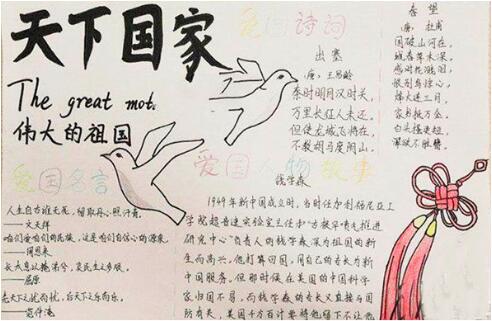 天下国家
The great mot.
伟大的祖国
爱国诗词
出塞
唐,王昌龄
秦时明月汉时关,
万里长征人未还。
但使龙城飞将在,
不教胡马度阴山。
春望
唐,杜甫
国破山河在,
城春草木深。
感时花溅泪,
恨别鸟惊心。
烽火连三月,
家书抵万金。
白头搔更短,
浑欲不胜簪。
爱国名言
人生自古谁无死,留取丹心照汗青。
——文天祥
咱们爱咱们的民族,这是咱们自信心的源泉。
——周恩来
长太息以掩涕兮,哀民生之多艰。
——屈原
先天下之忧而忧,后天下之乐而乐。
——范仲淹
爱国人物故事
钱学森
1949年新中国成立时,当时任加利福尼亚工
学院超音速实验室主任和"古根罕喷气推进
研究中心"负责人的钱学森深为祖国的新
生而高兴。他打算回国,用自己的专长为新
中国服务。但那时候在美国的中国科学
家归国不易,而钱学森的专长又直接与国
防有关,美国千方百计要将他留下不让他